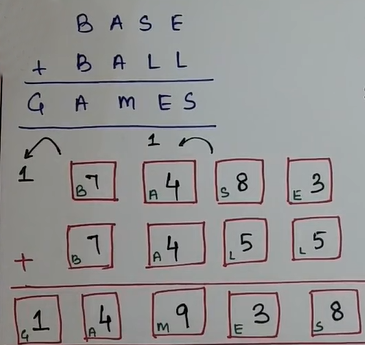 B A S E
+ B A L L
G A M E S
1 1
B 7 A 4 S 8 E 3
+ B 7 A 4 L 5 L 5
G 1 A 4 M 9 E 3 S 8